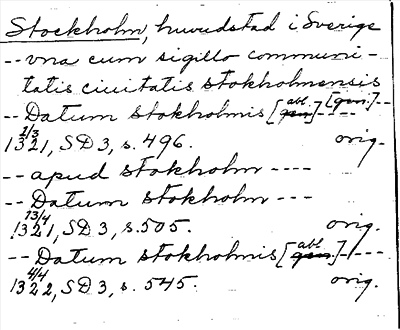 Stockholm, huvudstad i Sverige
-- vna cum sigillo communi-
tatis ciuitatis stokholmensis
-- Datum stokholmis [abl.] [gen.] --
1321 2/3, SD 3, s. 496. orig.
-- apud stokholm ----
-- Datum stokholm ---
1321 13/4, SD 3, s. 505. orig.
-- Datum stokholmis [abl.] ----
1322 4/4, SD 3, s. 545. orig.